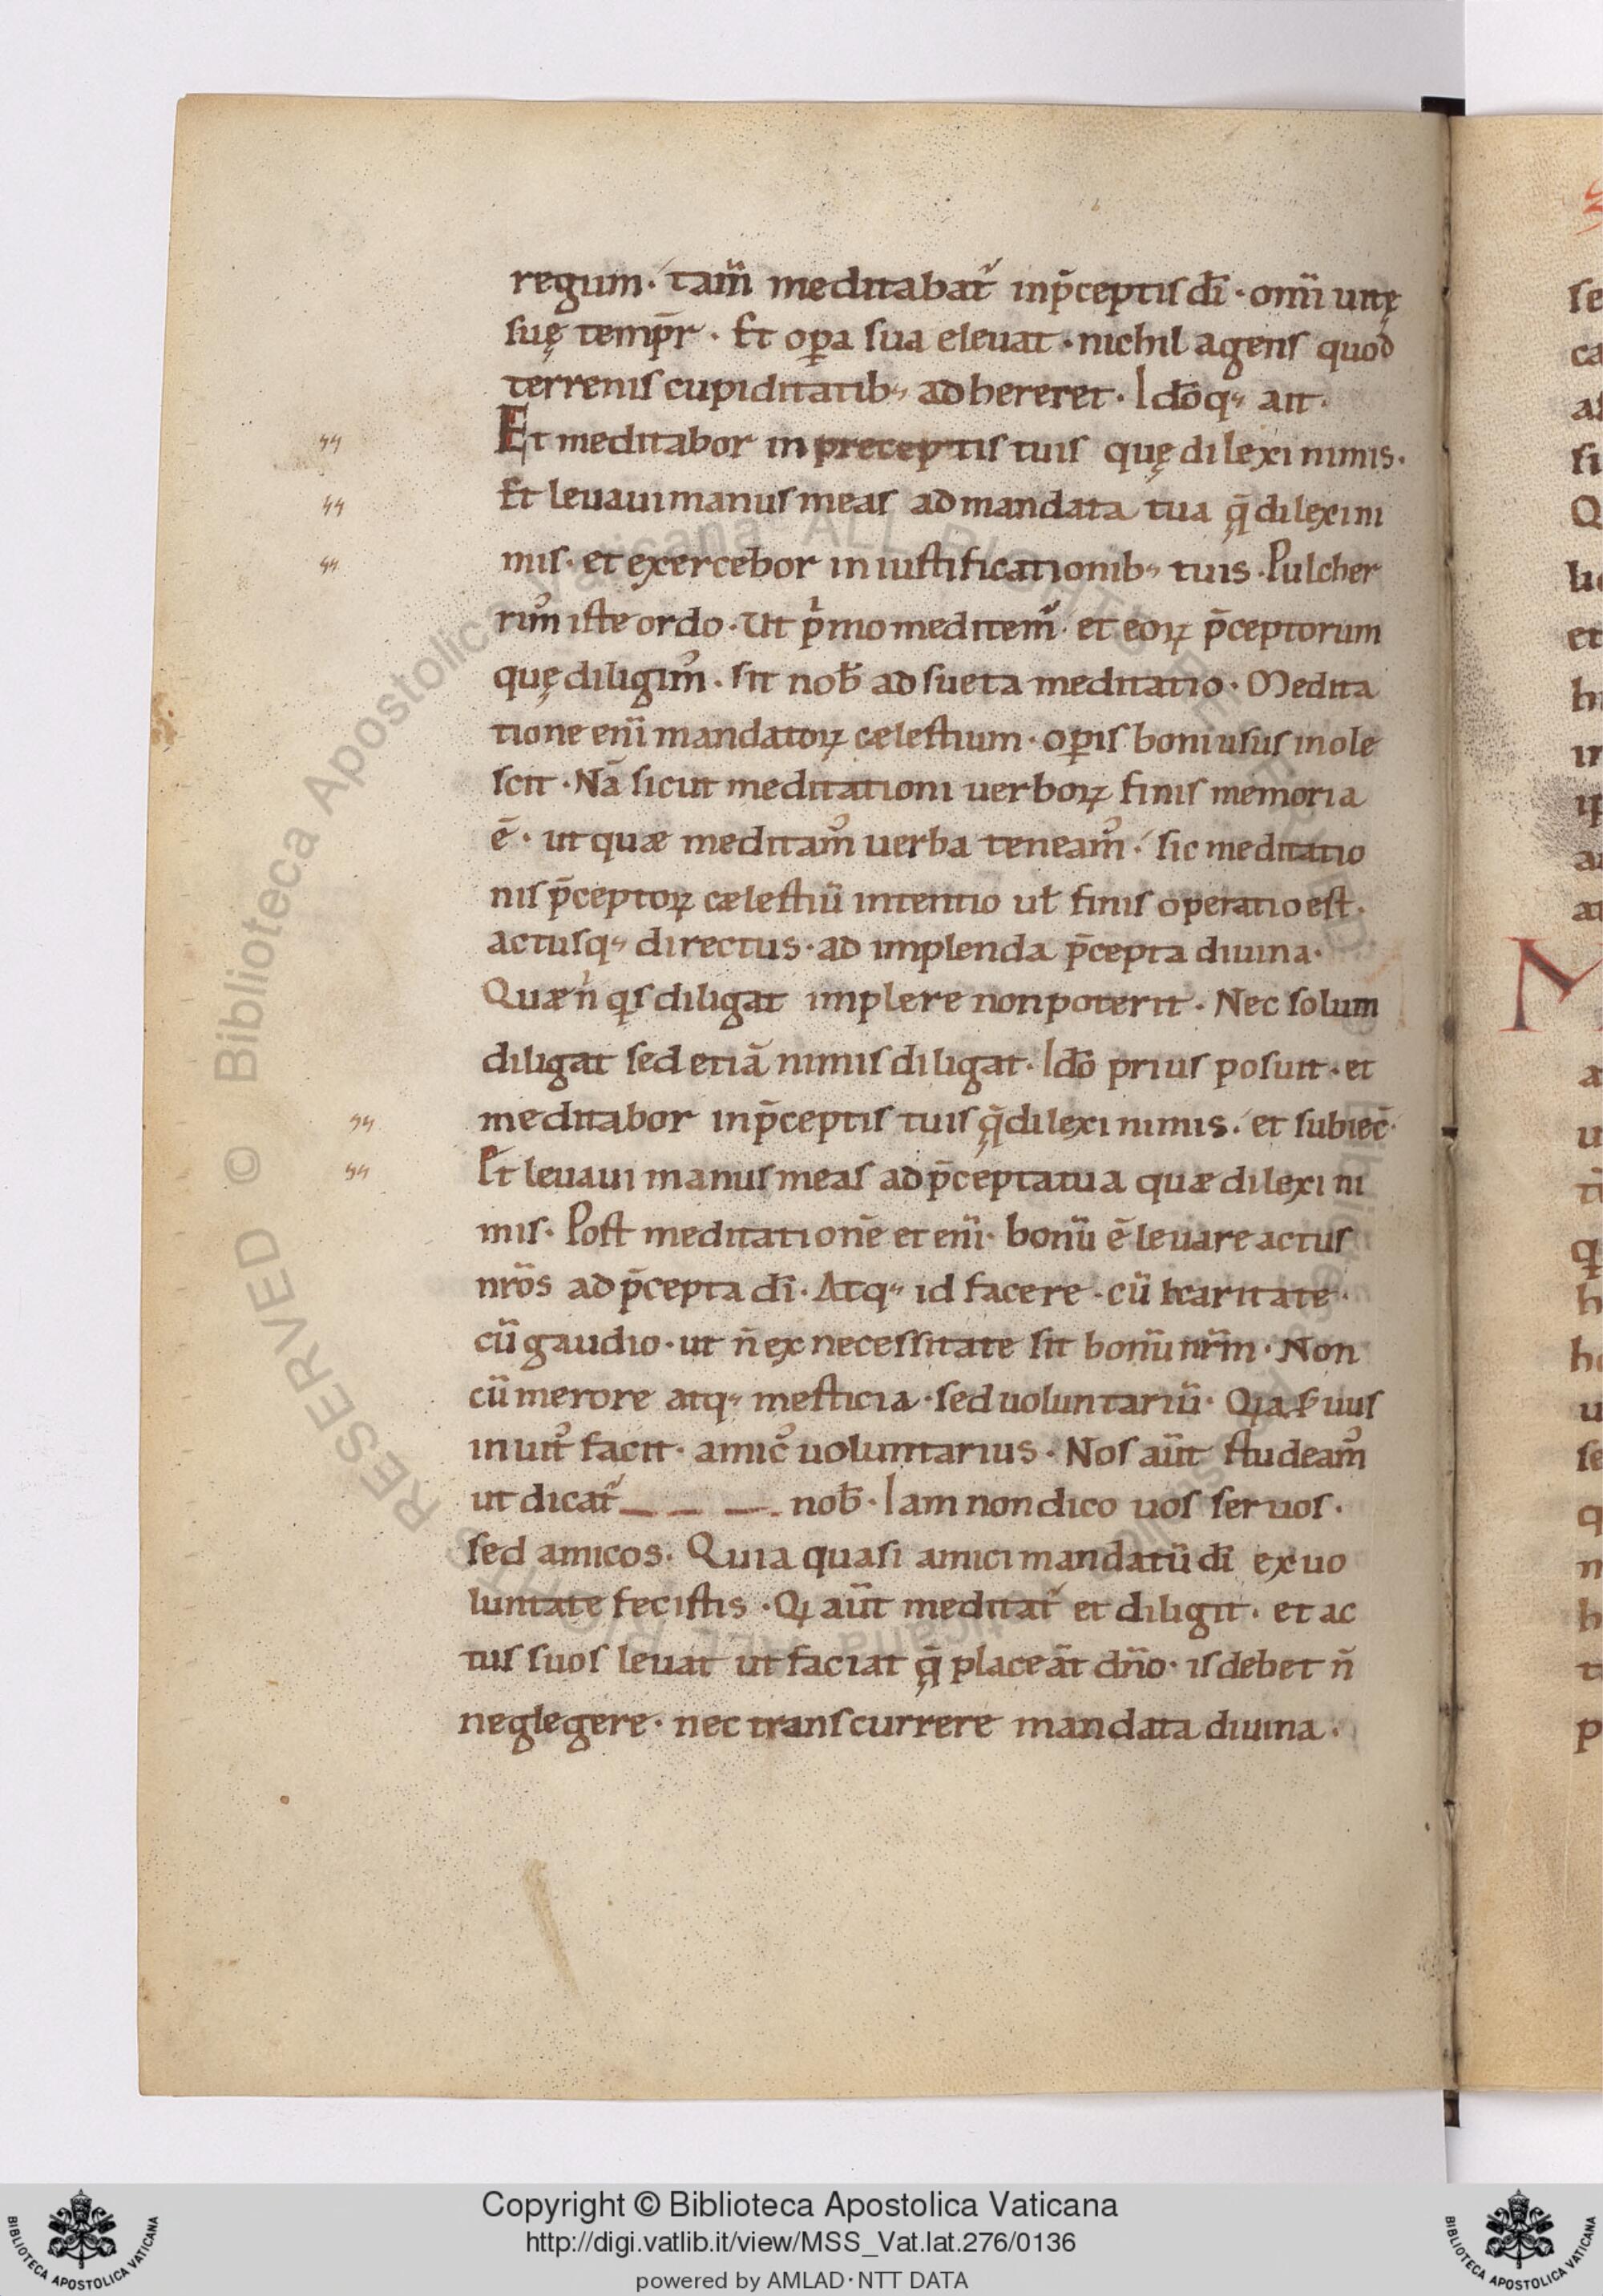 regum· tam̄ meditabat᷑ inp̄ceptis dī · om̄i uitę
suę temp̄r · Et oꝑa sua eleuat · nichil agens quod
terrenis cupiditatib; adhereret · Idōq; ait ·
Et meditabor in preceptis tuis quę dilexi nimis ·
Et leuaui manus meas ad mandata tua q̄ dilexi ni
mis · et exercebor in iustificationib; tuis · Pulcher
rim᷒ iste ordo · Ut pͥmo meditem᷑ · et eoꝝ p̄ceptorum
quę diligim᷒ · sit nob̄ adsueta meditatio · Medita
tione eni̅ mandatoꝝ cælestium · oꝑis boni usus inole
scit · Nā sicut meditationi uerboꝝ finis memoria
ē · ut quæ meditam᷒ uerba teneam᷒ · sic meditatio
nis p̄ceptoꝝ cælestiū intentio uł finis operatio est ·
actusq; directus · ad implenda p̄cepta diuina ·
Quæ n̄ qͥs diligat implere non poterit · Nec solum
diligat sed etiā nimis diligat · Idō prius posuit · et
meditabor inp̄ceptis tuis q̄ dilexi nimis · et subiec̄ ·
Et leuaui manus meas ad p̄cepta tua quæ dilexi ni
mis · Post meditationē et eni̅ · bonū ē leuare actus
nr̄os ad p̄cepta dī · Atq; id facere · cū karitate ·
cū gaudio · ut n̄ ex necessitate sit bonū nr̄m · Non
cū merore atq; mesticia · sed uoluntariū · Qia seruus
inuit᷒ facit · amic᷒ uoluntarius · Nos aūt studeam᷒
ut dicat᷑ nob̄ · Iam non dico uos seruos ·
sed amicos · Quia quasi amici mandatū dī ex uo
luntate fecistis · Qi aūt meditat᷑ et diligit · et ac
tus suos leuat ut faciat q̄ placeāt dn̄o · is debet n̄
neglegere · nec transcurrere mandata diuina ·
Copyright © Biblioteca Apostolica Vaticana
http://digi.vatlib.it/view/MSS_Vat.lat.276/0136
powered by AMLAD·NTT DATA